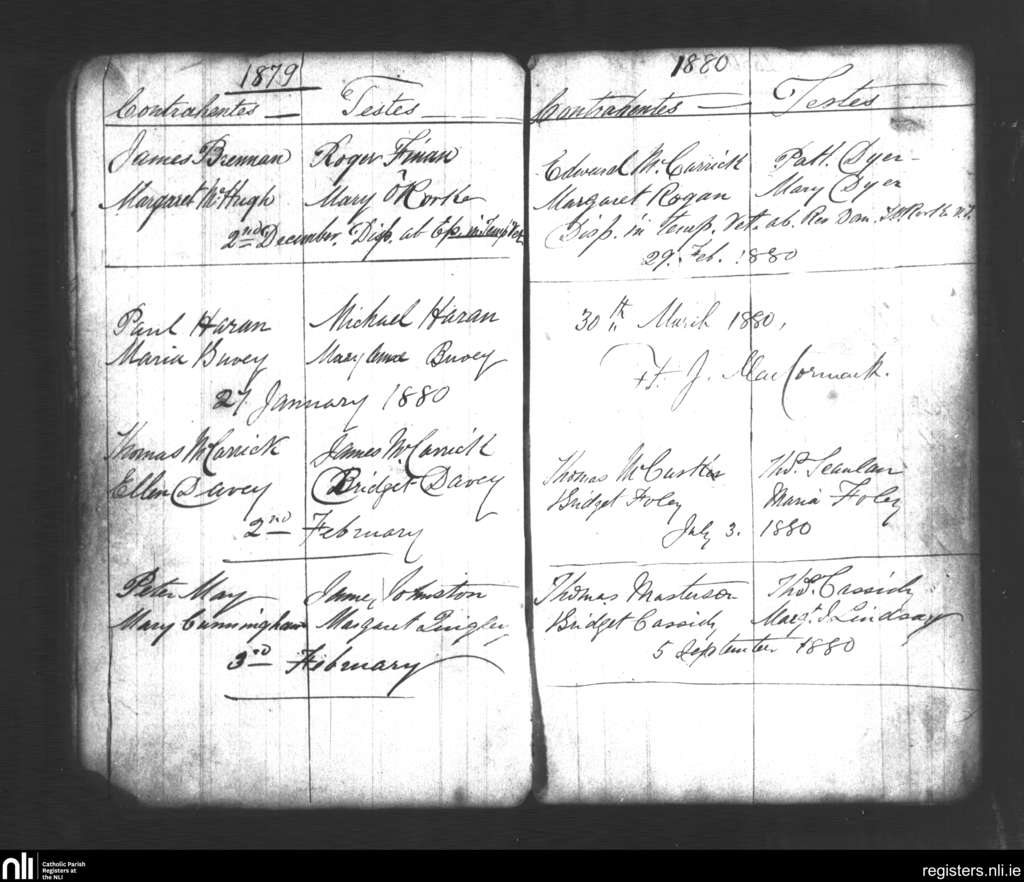 1879
Contrahentes — Testes
James Brennan Roger Finan
Margaret McHugh Mary O'Rorke
2nd December. Disp. ab Ep. in Temp. Vet.
Paul Haran Michael Haran
Maria Buvey Mary Anne Buvey
27 January 1880
Thomas McCarrick James McCarrick
Ellen Davey Bridget Davey
2nd February
Peter May James Johnston
Mary Cunningham Margaret Quigley
3rd February
1880
Contrahentes — Testes
Edward McCarrick Patt. Dyer
Margaret Rogan Mary Dyer
Disp. in Temp. Vet. ab. Rev Dan.
29. Feb. 1880
30th March 1880,
J. MacCormack.
Thomas Thos. Scanlan
Bridget Foley Maria Foley
July 3. 1880
Thomas Masterson Thos. Cassidy
Bridget Cassidy Margt. J. Lindsay
5 September 1880
nli Catholic Parish
Registers at
the NLI
registers.nli.ie